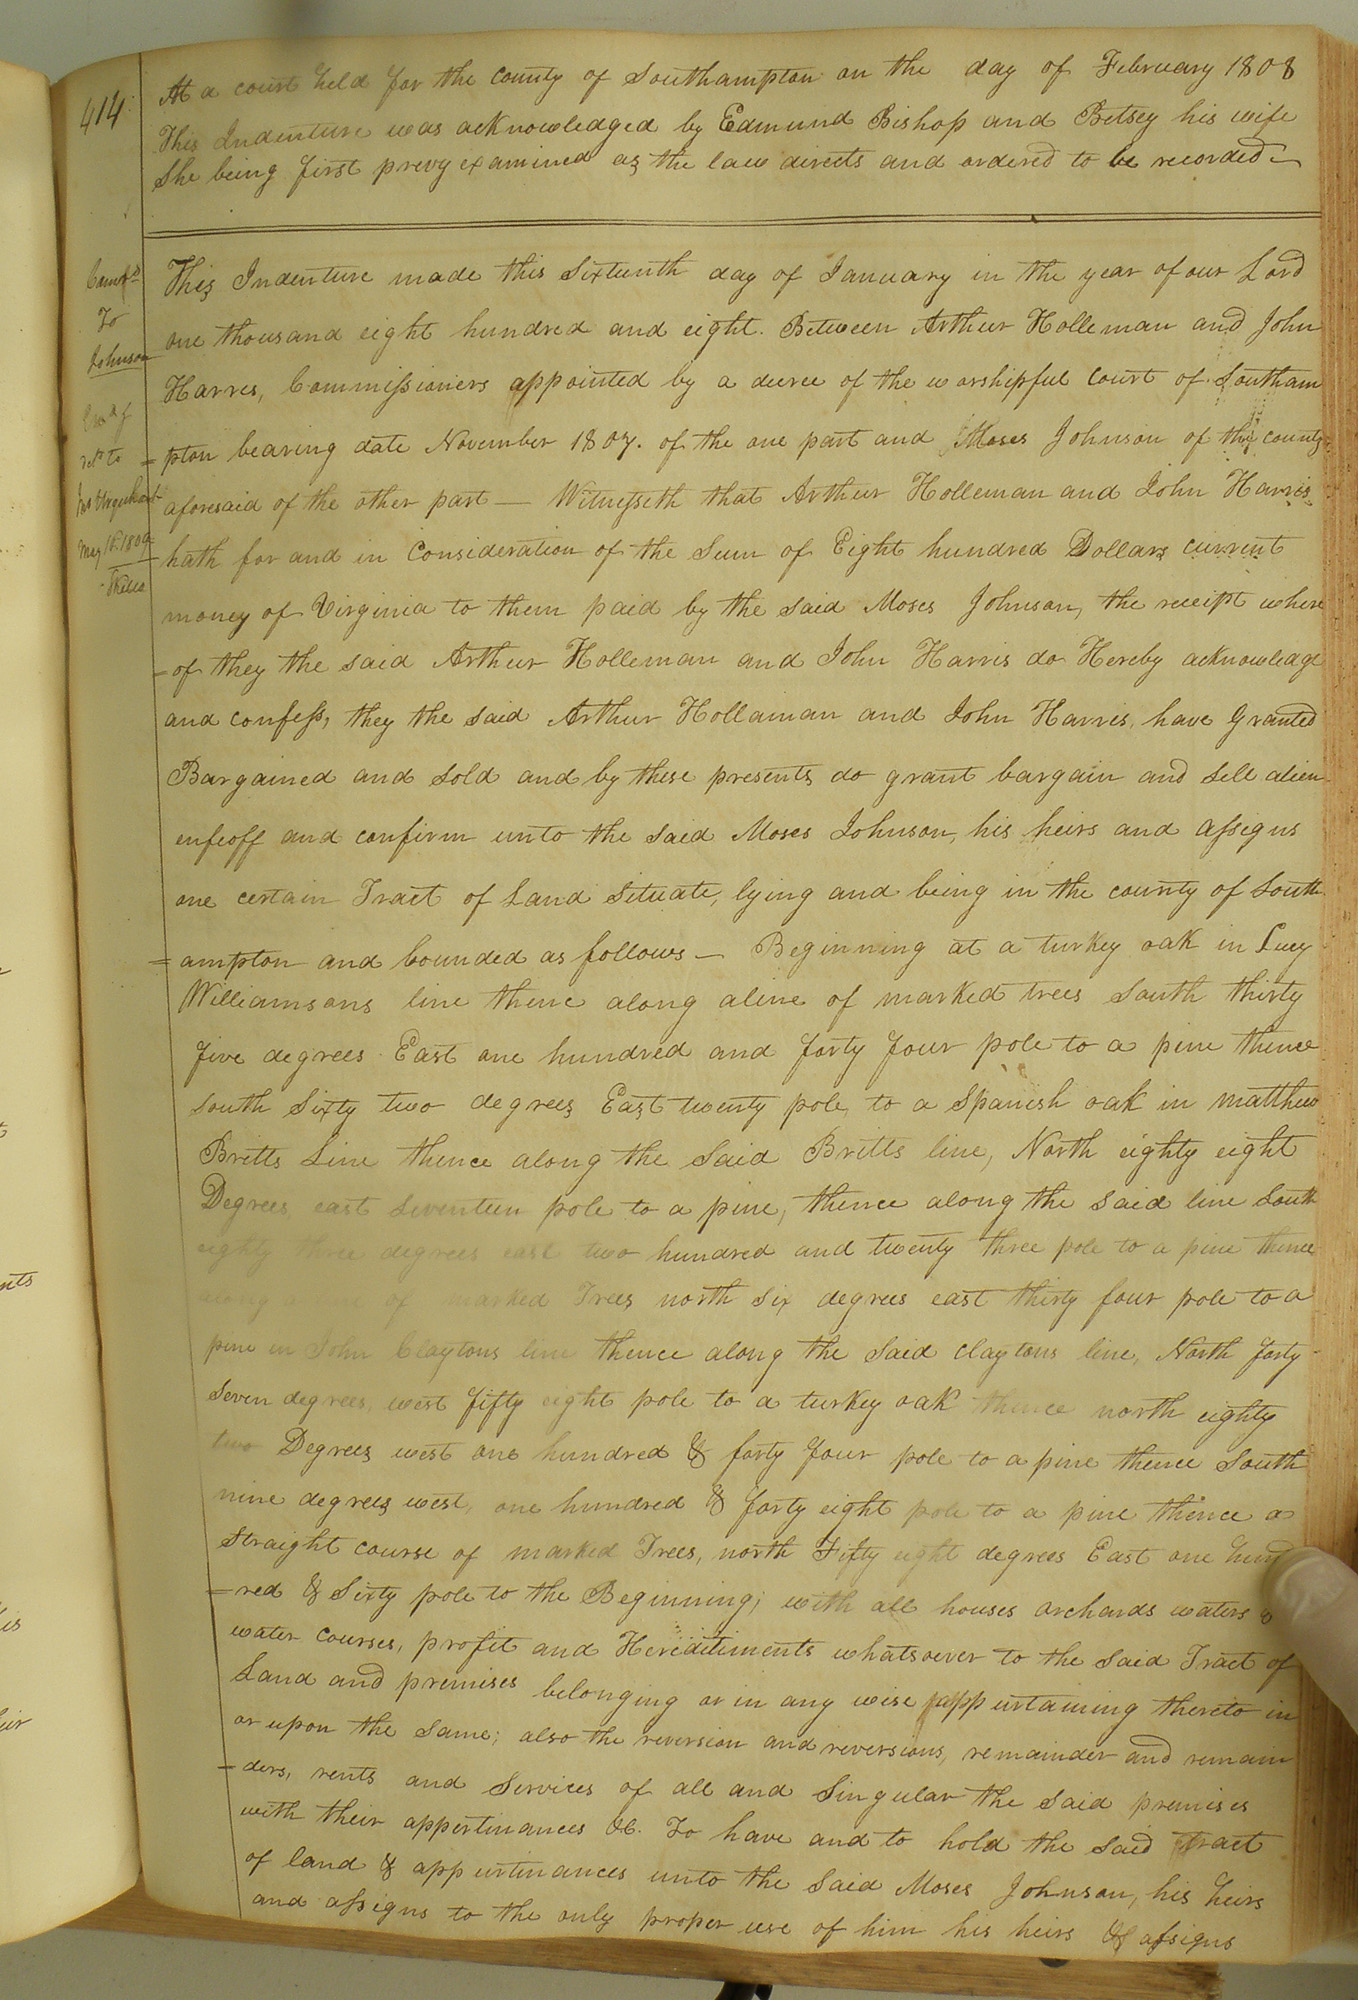 414
At a court held for the county of Southampton on the day of February 1808
This Indenture was acknowledged by Edmund Bishop and Betsey his wife
She being first prevy examined as the law directs and ordered to be recorded
Comrs
To
Johnson
Exd &
retd to
May 16 1809
This Indenture made this Sixteenth day of January in the year of our Lord
one thousand eight hundred and eight. Between Arthur Holleman and John
Harres, Commissioners appointed by a decree of the worshipful Court of Southam
=pton bearing date November 1807. of the one part and Moses Johnson of the county
aforesaid of the other part — Witnesseth that Arthur Holleman and John Harris
hath for and in Consideration of the Sum of Eight hundred Dollars current
money of Virginia to them paid by the said Moses Johnson, the receipt where
=of they the said Arthur Holleman and John Harris do Hereby acknowledge
and confess, they the said Arthur Hollaman and John Harris, have Granted
Bargained and sold and by these presents do grant bargain and sell alien
enfeoff and confirm unto the said Moses Johnson, his heirs and assegns
one certain Tract of Land Situate, lying and being in the county of South
=ampton and bounded as follows — Beginning at a turkey oak in Lucy
Williamsons line thence along aline of marked trees South thirty
five degrees East one hundred and forty four pole to a pine thence
South Sixty two degrees East twenty pole to a Spanish oak in matthew
Britts Line thence along the said Britts line, North eighty eight
Degrees, east seventeen pole to a pine, thence along the said line South
eighty three degrees east two hundred and twenty three pole to a pine thence
along a of marked Trees north six degrees east thirty four pole to a
pine in John Claytons line thence along the said claytons line, North forty
seven degrees, west fifty eight pole to a turkey oak thence north eighty
two Degrees west one hundred & forty four pole to a pine thence South
nine degrees west, one hundred & forty eight pole to a pine thence a
straight course of marked Trees, north Fifty eight degrees East one hund
=red & Sixty pole to the Beginning; with all houses orchards waters &
water courses, profit and Hereditiments whatsoever to the said Tract of
Land and premises belonging or in any wise appurtaining thereto in
or upon the same; also the reversion and reversions, remainder and remain
=ders, rents and Services of all and Singular the said premises
with their appertinances &c. To have and to hold the said tract
of land & appurtinances unto the said Moses Johnson, his heirs
and assigns to the only proper use of him his heirs & assigns